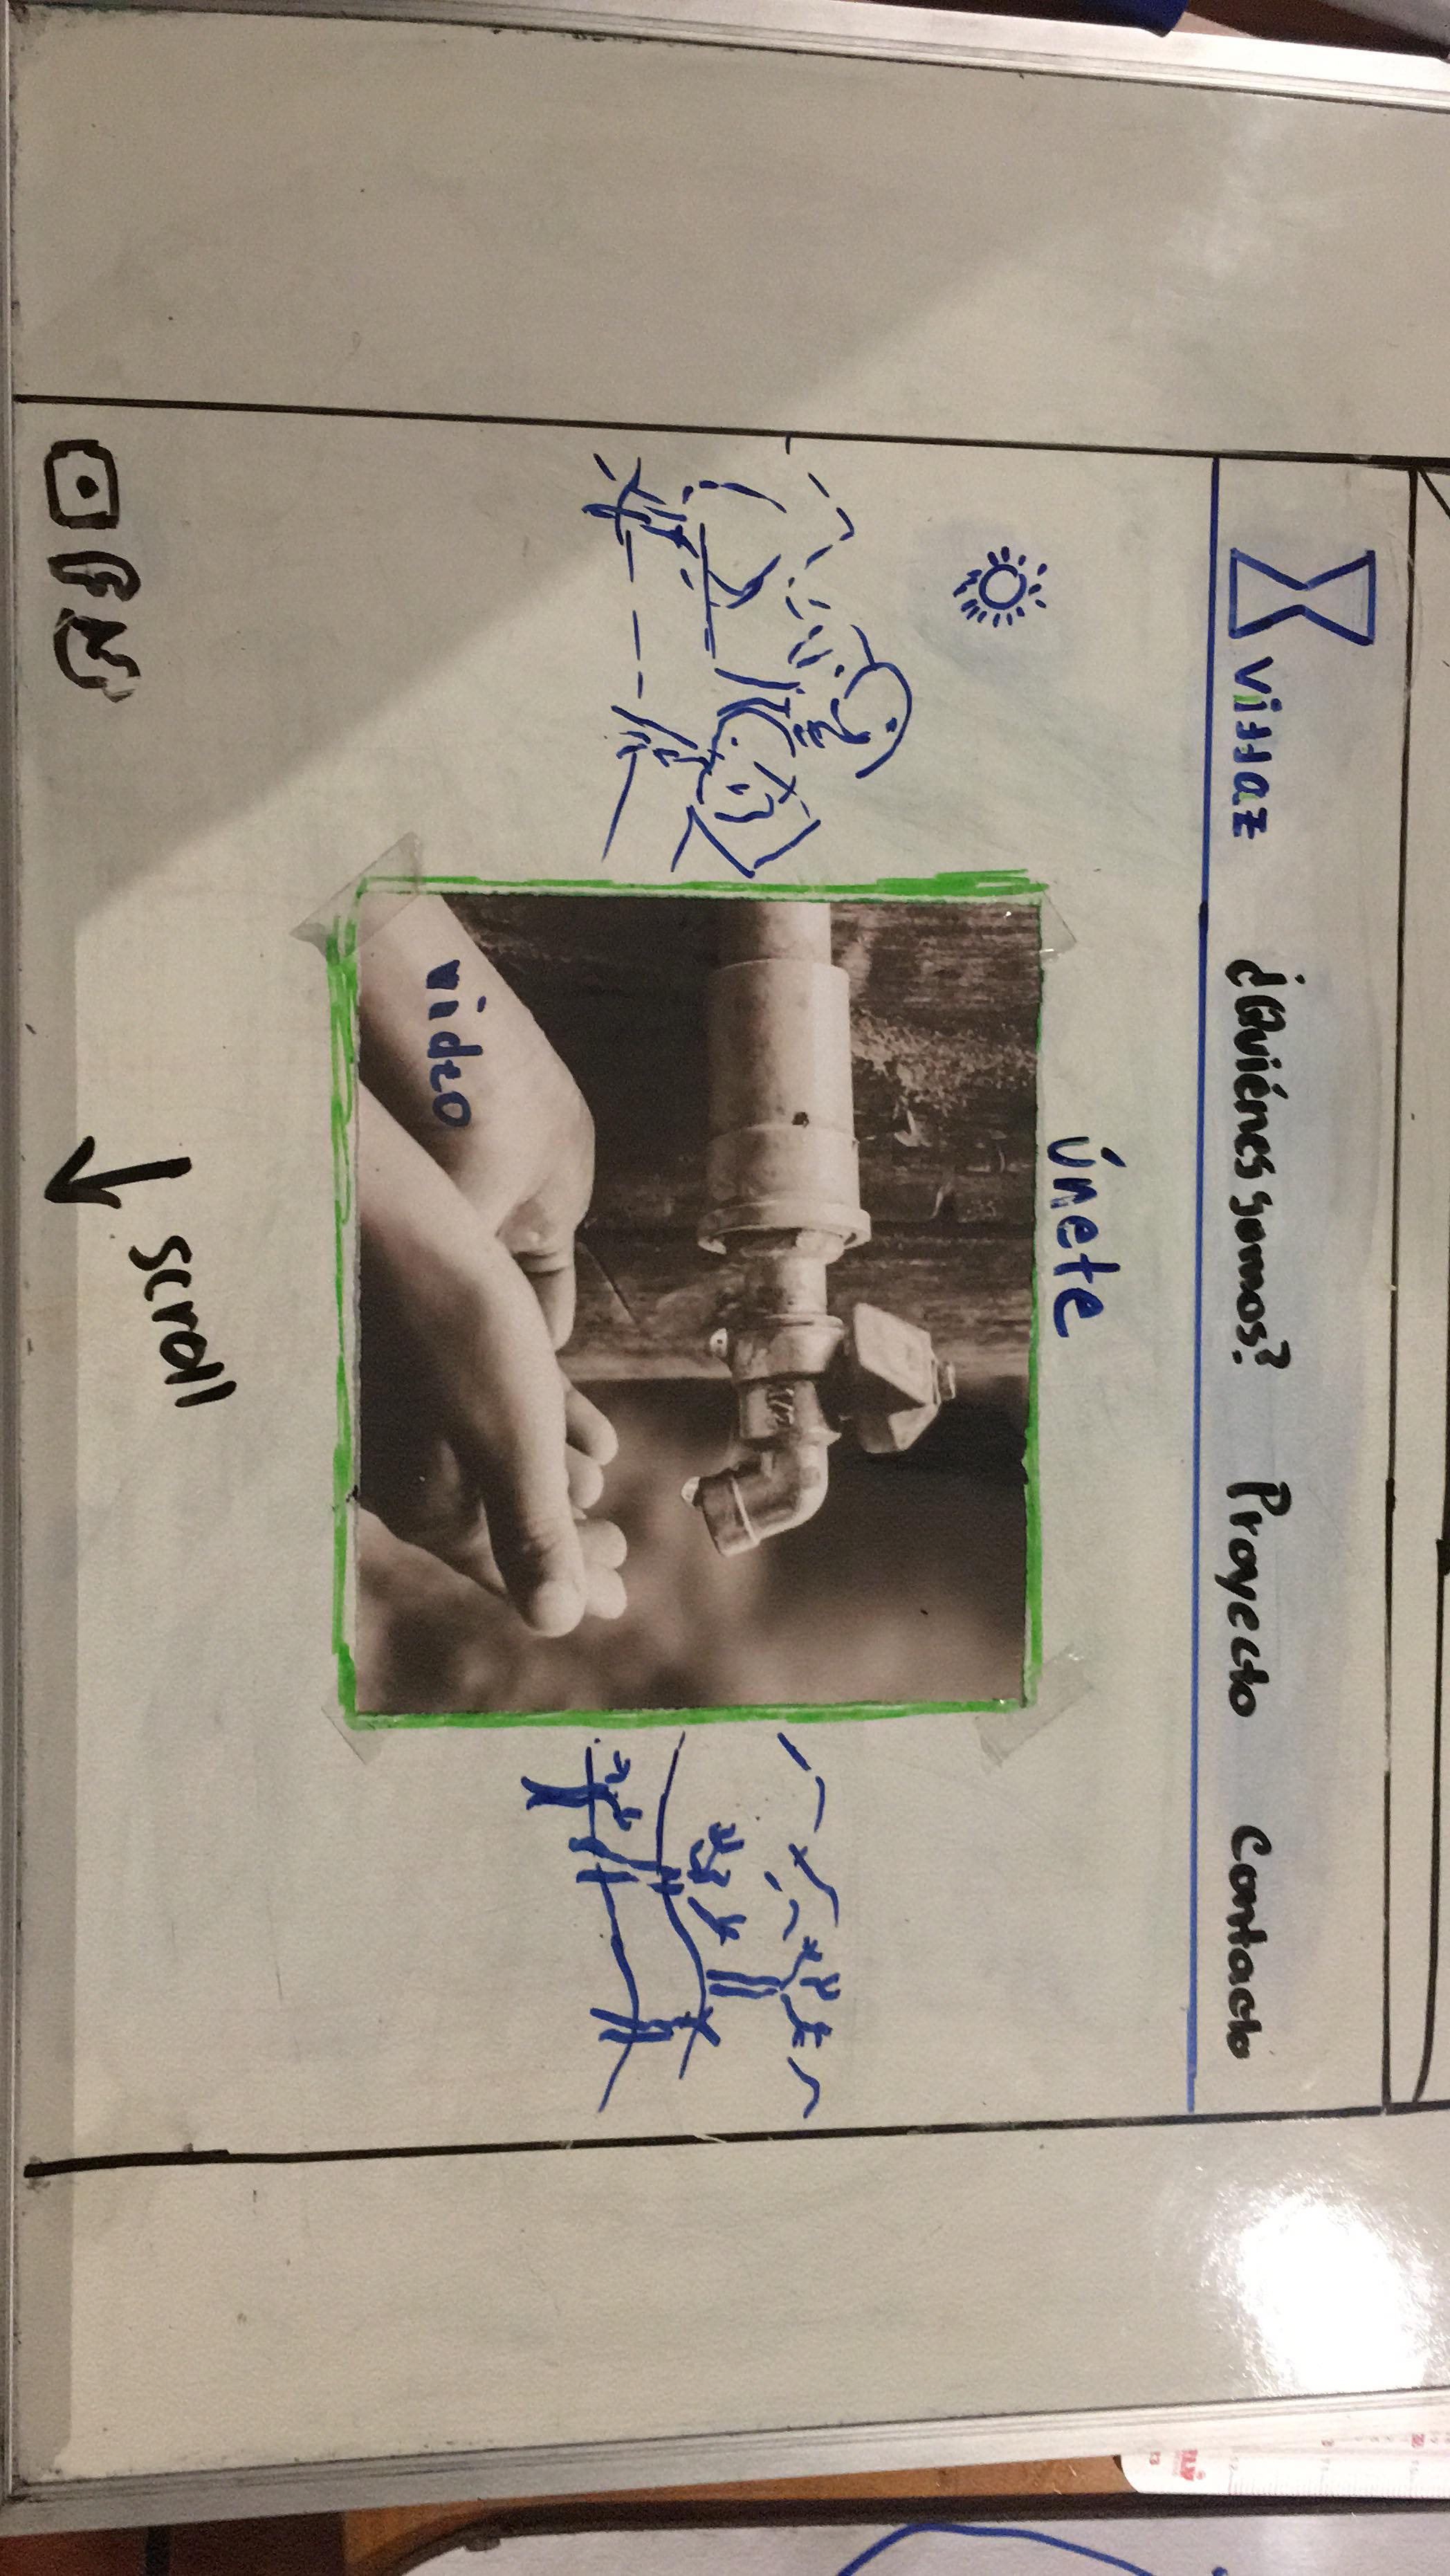 Vittaz ¿Quiénes somos? Proyecto Contacto
Únete
video
scroll